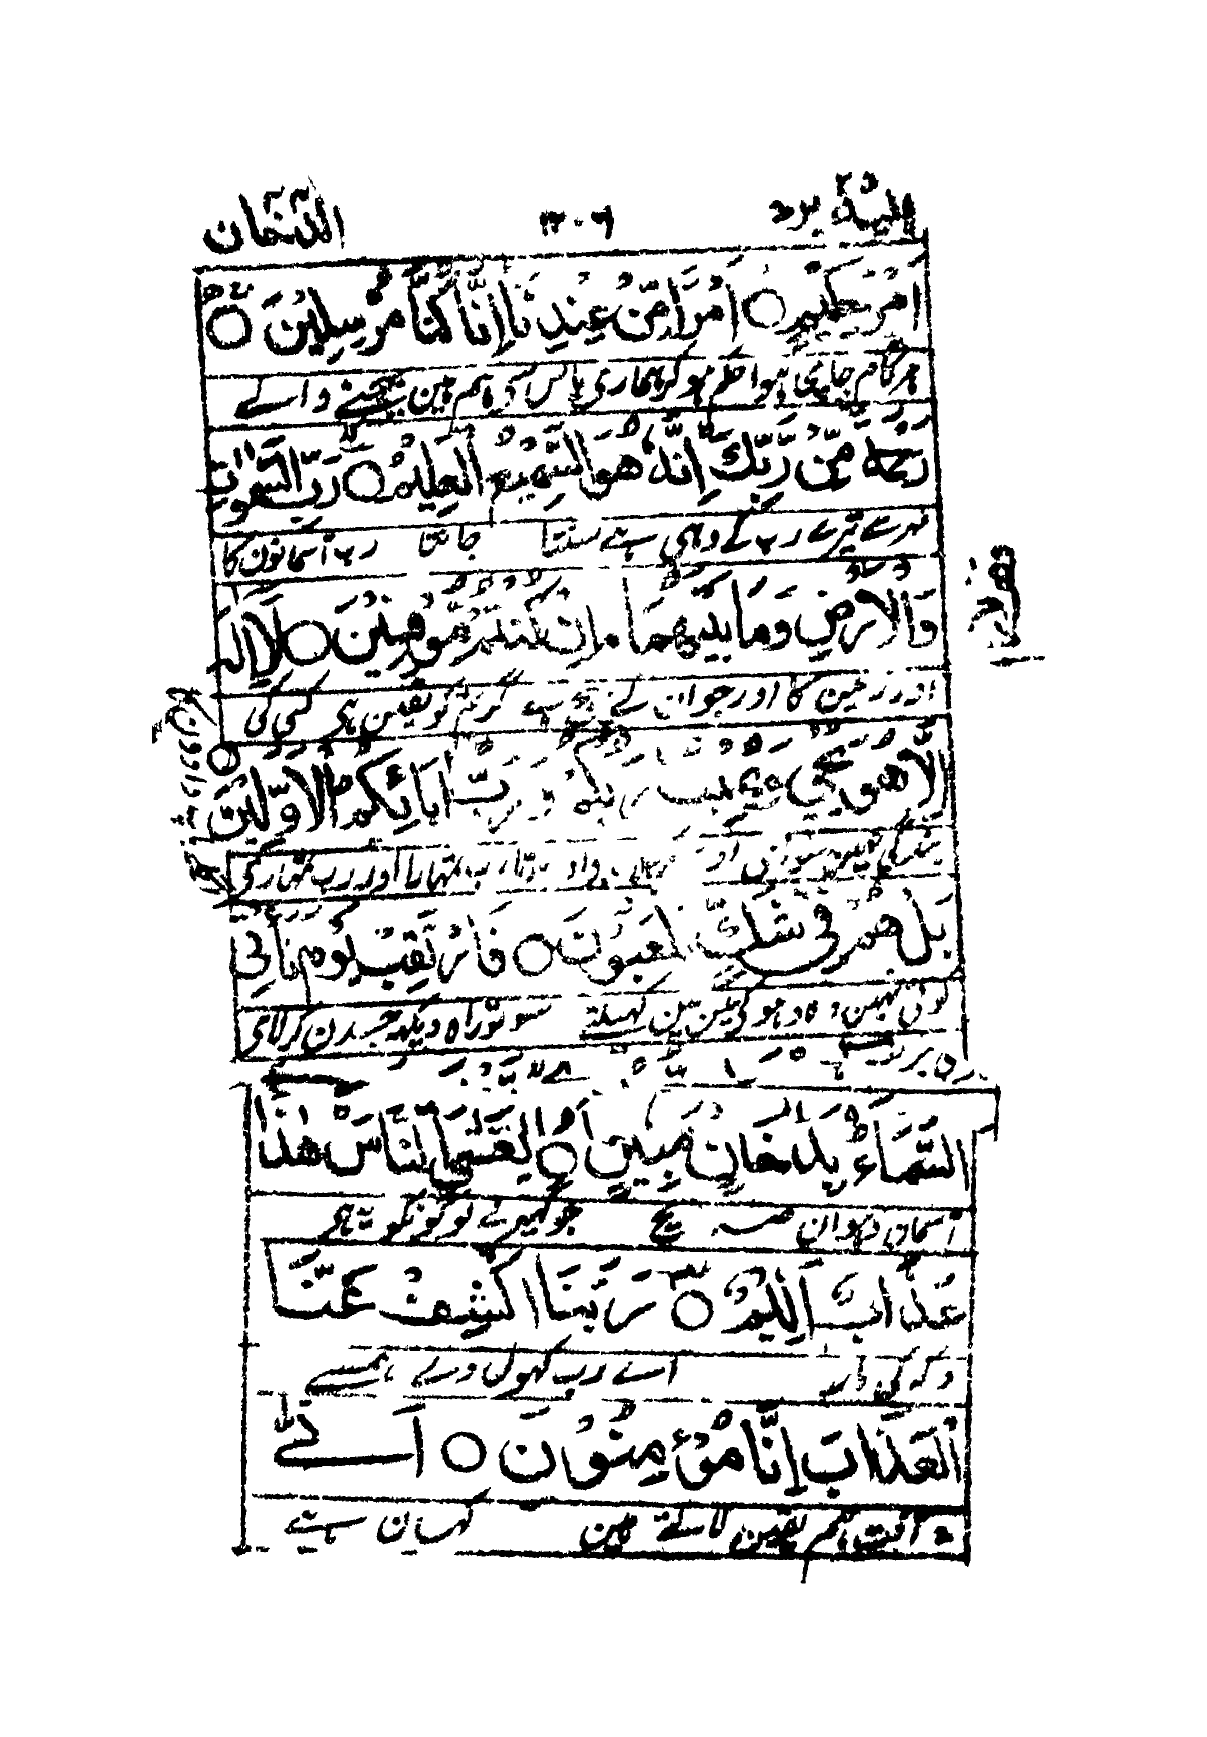 الیہ یرد ۲۵ ۱۲۰۶ الدخان
اَمْرٍ حَكِيْمٍ ○ اَمْرًا مِّنْ عِنْدِنَا اِنَّا كُنَّا مُرْسِلِيْنَ ○
ہر کام جانچا ہوا حکم ہو کر ہماری پاس سی ہم ہین بھیجنے والے
رَحْمَةً مِّنْ رَّبِّكَ اِنَّهٗ هُوَ السَّمِيْعُ الْعَلِيْمُ ○ رَبِّ السَّمٰوٰتِ
مہر سے تیرے رب کے وہی ہے سنتا جانتا رب آسمانون کا
وَالْاَرْضِ وَمَا بَيْنَهُمَا اِنْ كُنْتُمْ مُّوْقِنِيْنَ ○ لَا اِلٰهَ
اور زمین کا اور جو ان کے بیچ ہے گر تم کو یقین ہر کسی کی
اِلَّا هُوَ يُحْيِيْ وَيُمِيْتُ رَبُّكُمْ وَرَبُّ اٰبَائِكُمُ الْاَوَّلِيْنَ ○
بندگی نہین تمہارا اور رب تمہارے
بَلْ هُمْ فِيْ شَكٍّ يَّلْعَبُوْنَ ○ فَارْتَقِبْ يَوْمَ تَاْتِي
کوئی نہین وہ دہوکے مین ہین کہیلتے سو تو راہ دیکہ جسدن کر لاوی
السَّمَاءُ بِدُخَانٍ مُّبِيْنٍ ○ يَّغْشَى النَّاسَ هٰذَا
آسمان دہوان صریح جو گہیرے لوگونکو یہ ہر
عَذَابٌ اَلِيْمٌ ○ رَبَّنَا اكْشِفْ عَنَّا
دکہ کی مار اے رب کہول دے ہمسے
الْعَذَابَ اِنَّا مُؤْمِنُوْنَ ○ اَنّٰى
یہ آفت ہم یقین لاتے ہین کہان ہے